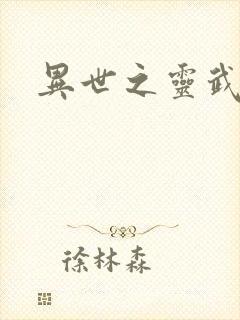 異世之靈武
徐林森